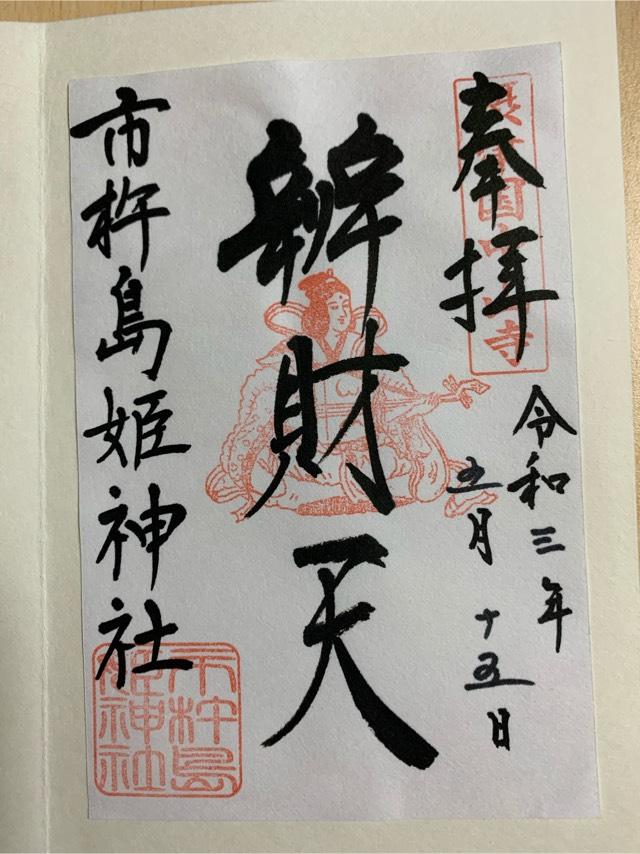 奉拝
令和三年
五月十五日
辨財天
市杵島姫神社
市杵島姫神社